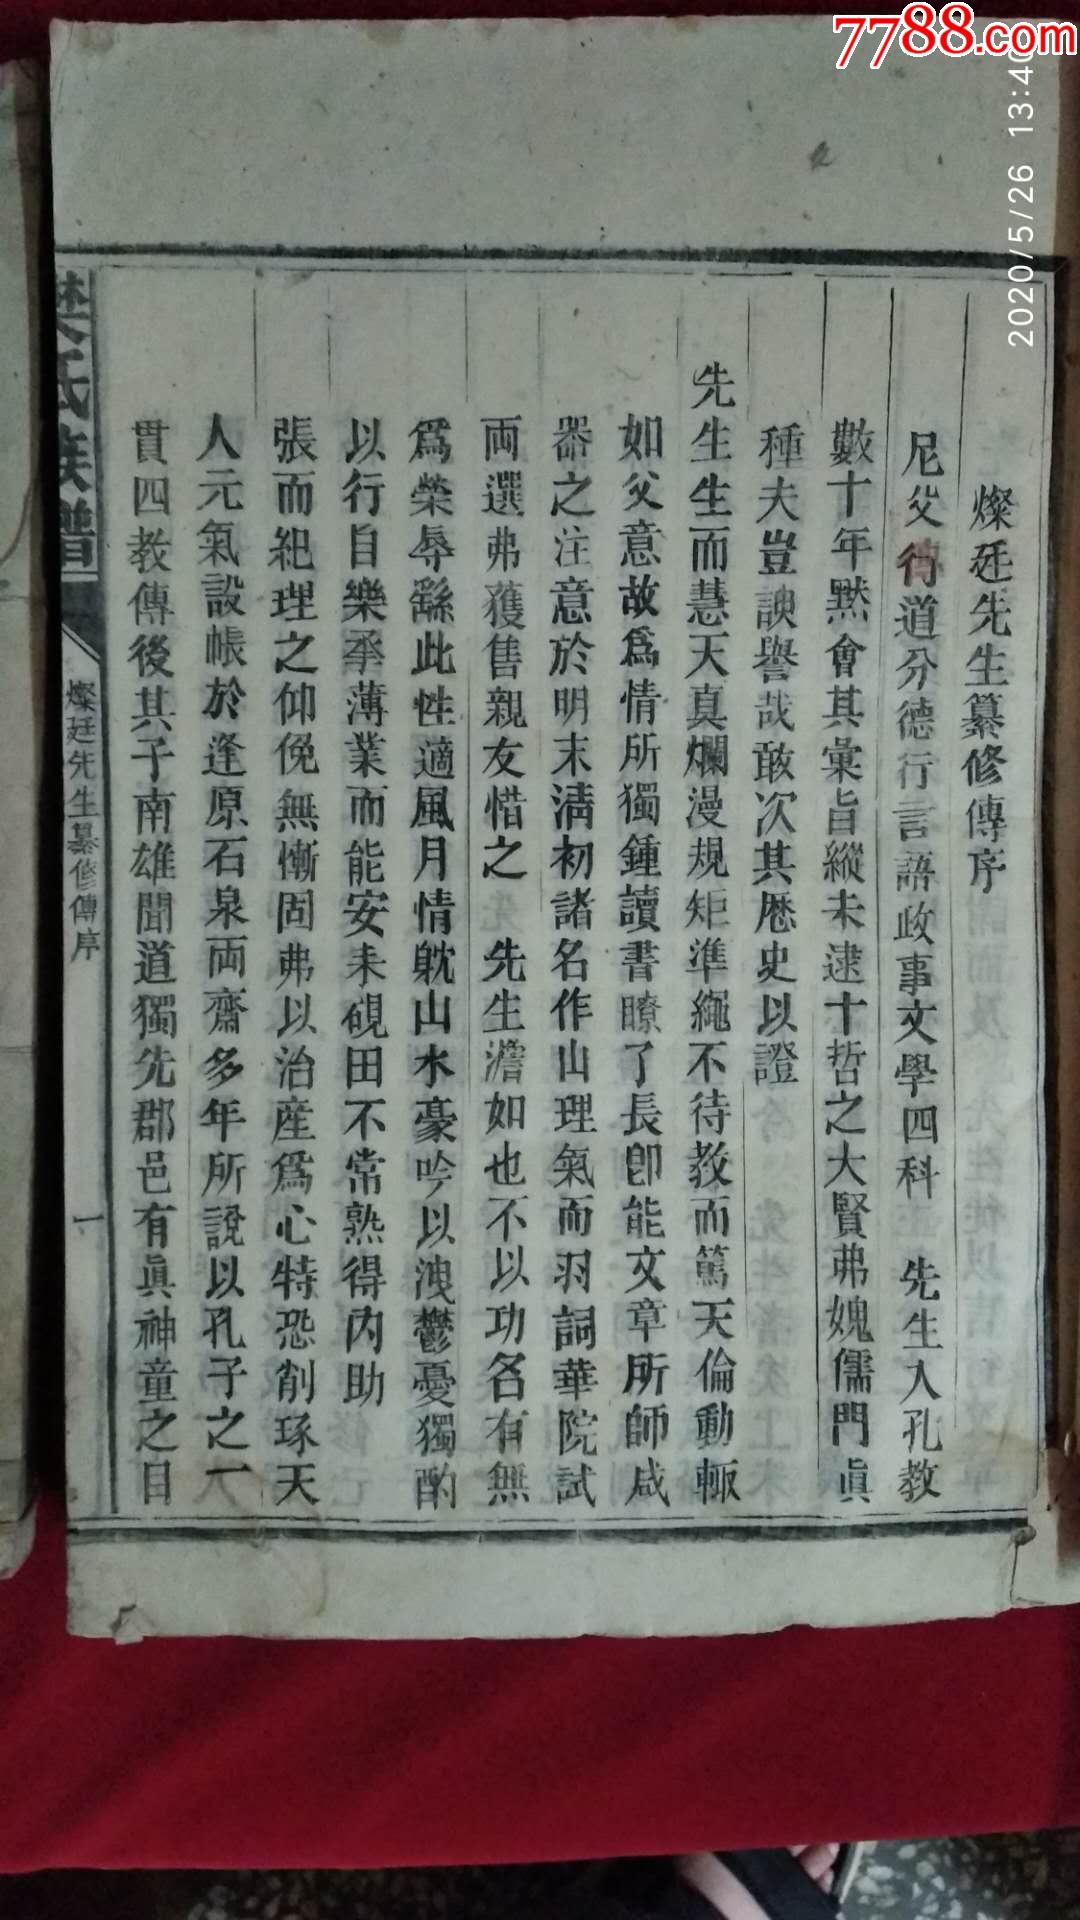 7788.com
2020/5/26 13:40
燦廷先生纂修傳序
尼父衍道分德行言語政事文學四科 先生入孔教
數十年黙會其彙旨縱未逮十哲之大賢弗媿儒門眞
種夫豈諛譽哉敢次其歷史以證
先生生而慧天真爛漫規矩準繩不待教而篤天倫動輙
如父意故爲情所獨鍾讀書瞭了長卽能文章所師咸
器之注意於明末淸初諸名作山理氣而羽詞華院試
両選弗獲售親友惜之 先生澹如也不以功名有無
爲榮辱繇此性適風月情躭山水豪吟以洩鬱憂獨酌
以行自樂秊薄業而能安耒硯田不常熟得內助
張而紀理之仰俛無慚固弗以治産爲心特恐削琢天
人元氣設帳於逢原石泉両齋多年所說以孔子之一
貫四教傳後其子南雄聞道獨先郡邑有眞神童之目
樊氏族譜
燦廷先生纂修傳序
一